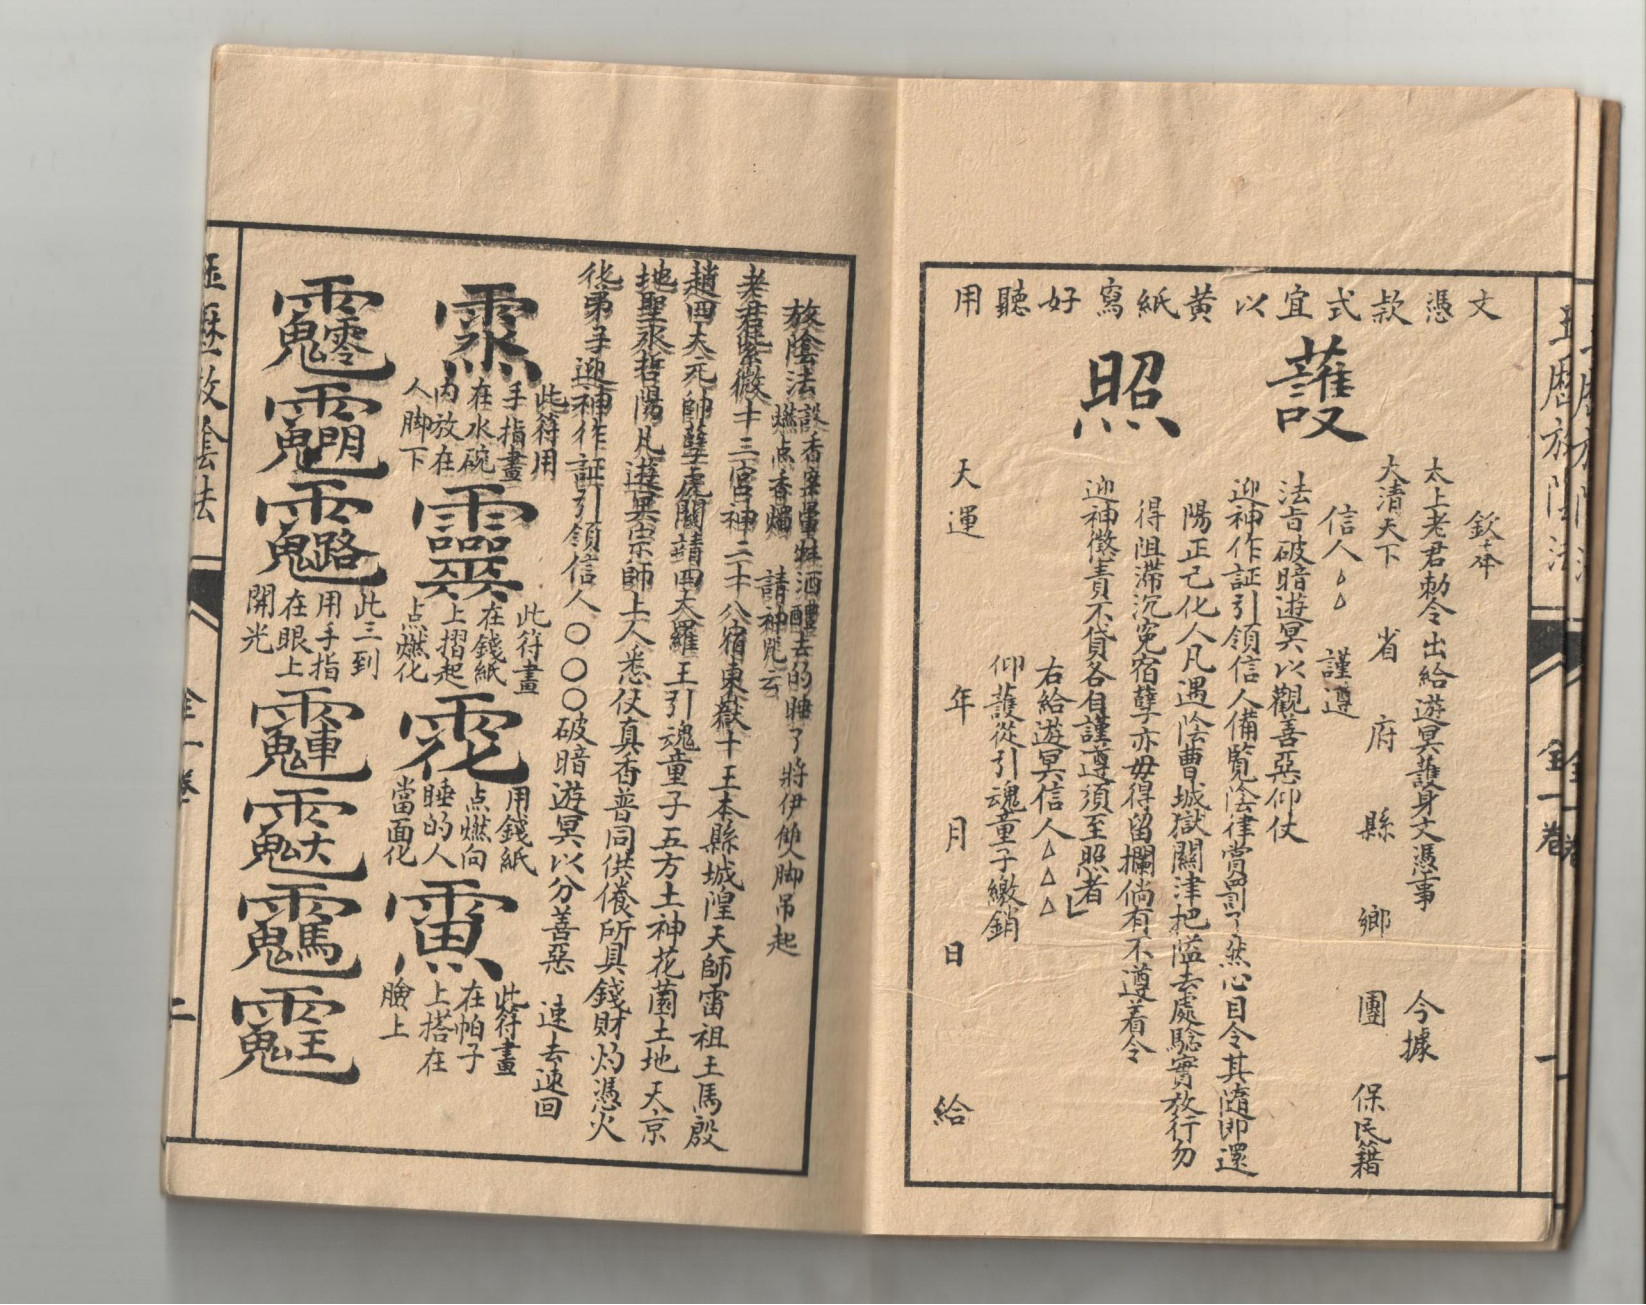 文憑款式宜以黃紙寫好聽用
護照
欽奉
太上老君勅令出給遊冥護身文憑事 今據
大清天下 省 府 縣 鄉 團 保民籍
信人△△ 謹遵
法旨破暗遊冥以觀善惡仰仗
迎神作証引領信人備覧陰律賞罰了然心目令其隨即還
陽正己化人凡遇陰曹城獄關津把隘去處騐實放行勿
得阻滞沉寃宿孽亦毋得留攔倘有不遵着令
迎神懲責不貸各自謹遵須至照者
右給遊冥信人△△△
仰護從引魂童子繳銷
天運 年 月 日 給
玉歷放陰法 全一卷 一
放陰法
設香案雷蚨酒醴去的睡了將伊雙脚吊起
燃点香燭 請神咒云
老君紫微十三宮神二十八宿東嶽十王本縣城隍天師雷祖王馬殷
趙四大元帥孽虎關請四大羅王引魂童子五方土神花園土地天京
地聖丞哲陽凡遊冥宗師上人悉仗真香普同供養所具錢財灼憑火
後弟子迎神作証引領信人〇〇〇破暗遊冥以分善惡 速去速回
此符用
手指畫
在水碗
内放在
人脚下
此符畫
在錢紙
上摺起
点燃化
用錢紙
点燃向
睡的人
當面化
此符畫
在帕子
上搭在
臉上
此三到
用手指
在眼上
開光
玉歷放陰法 全一卷 二